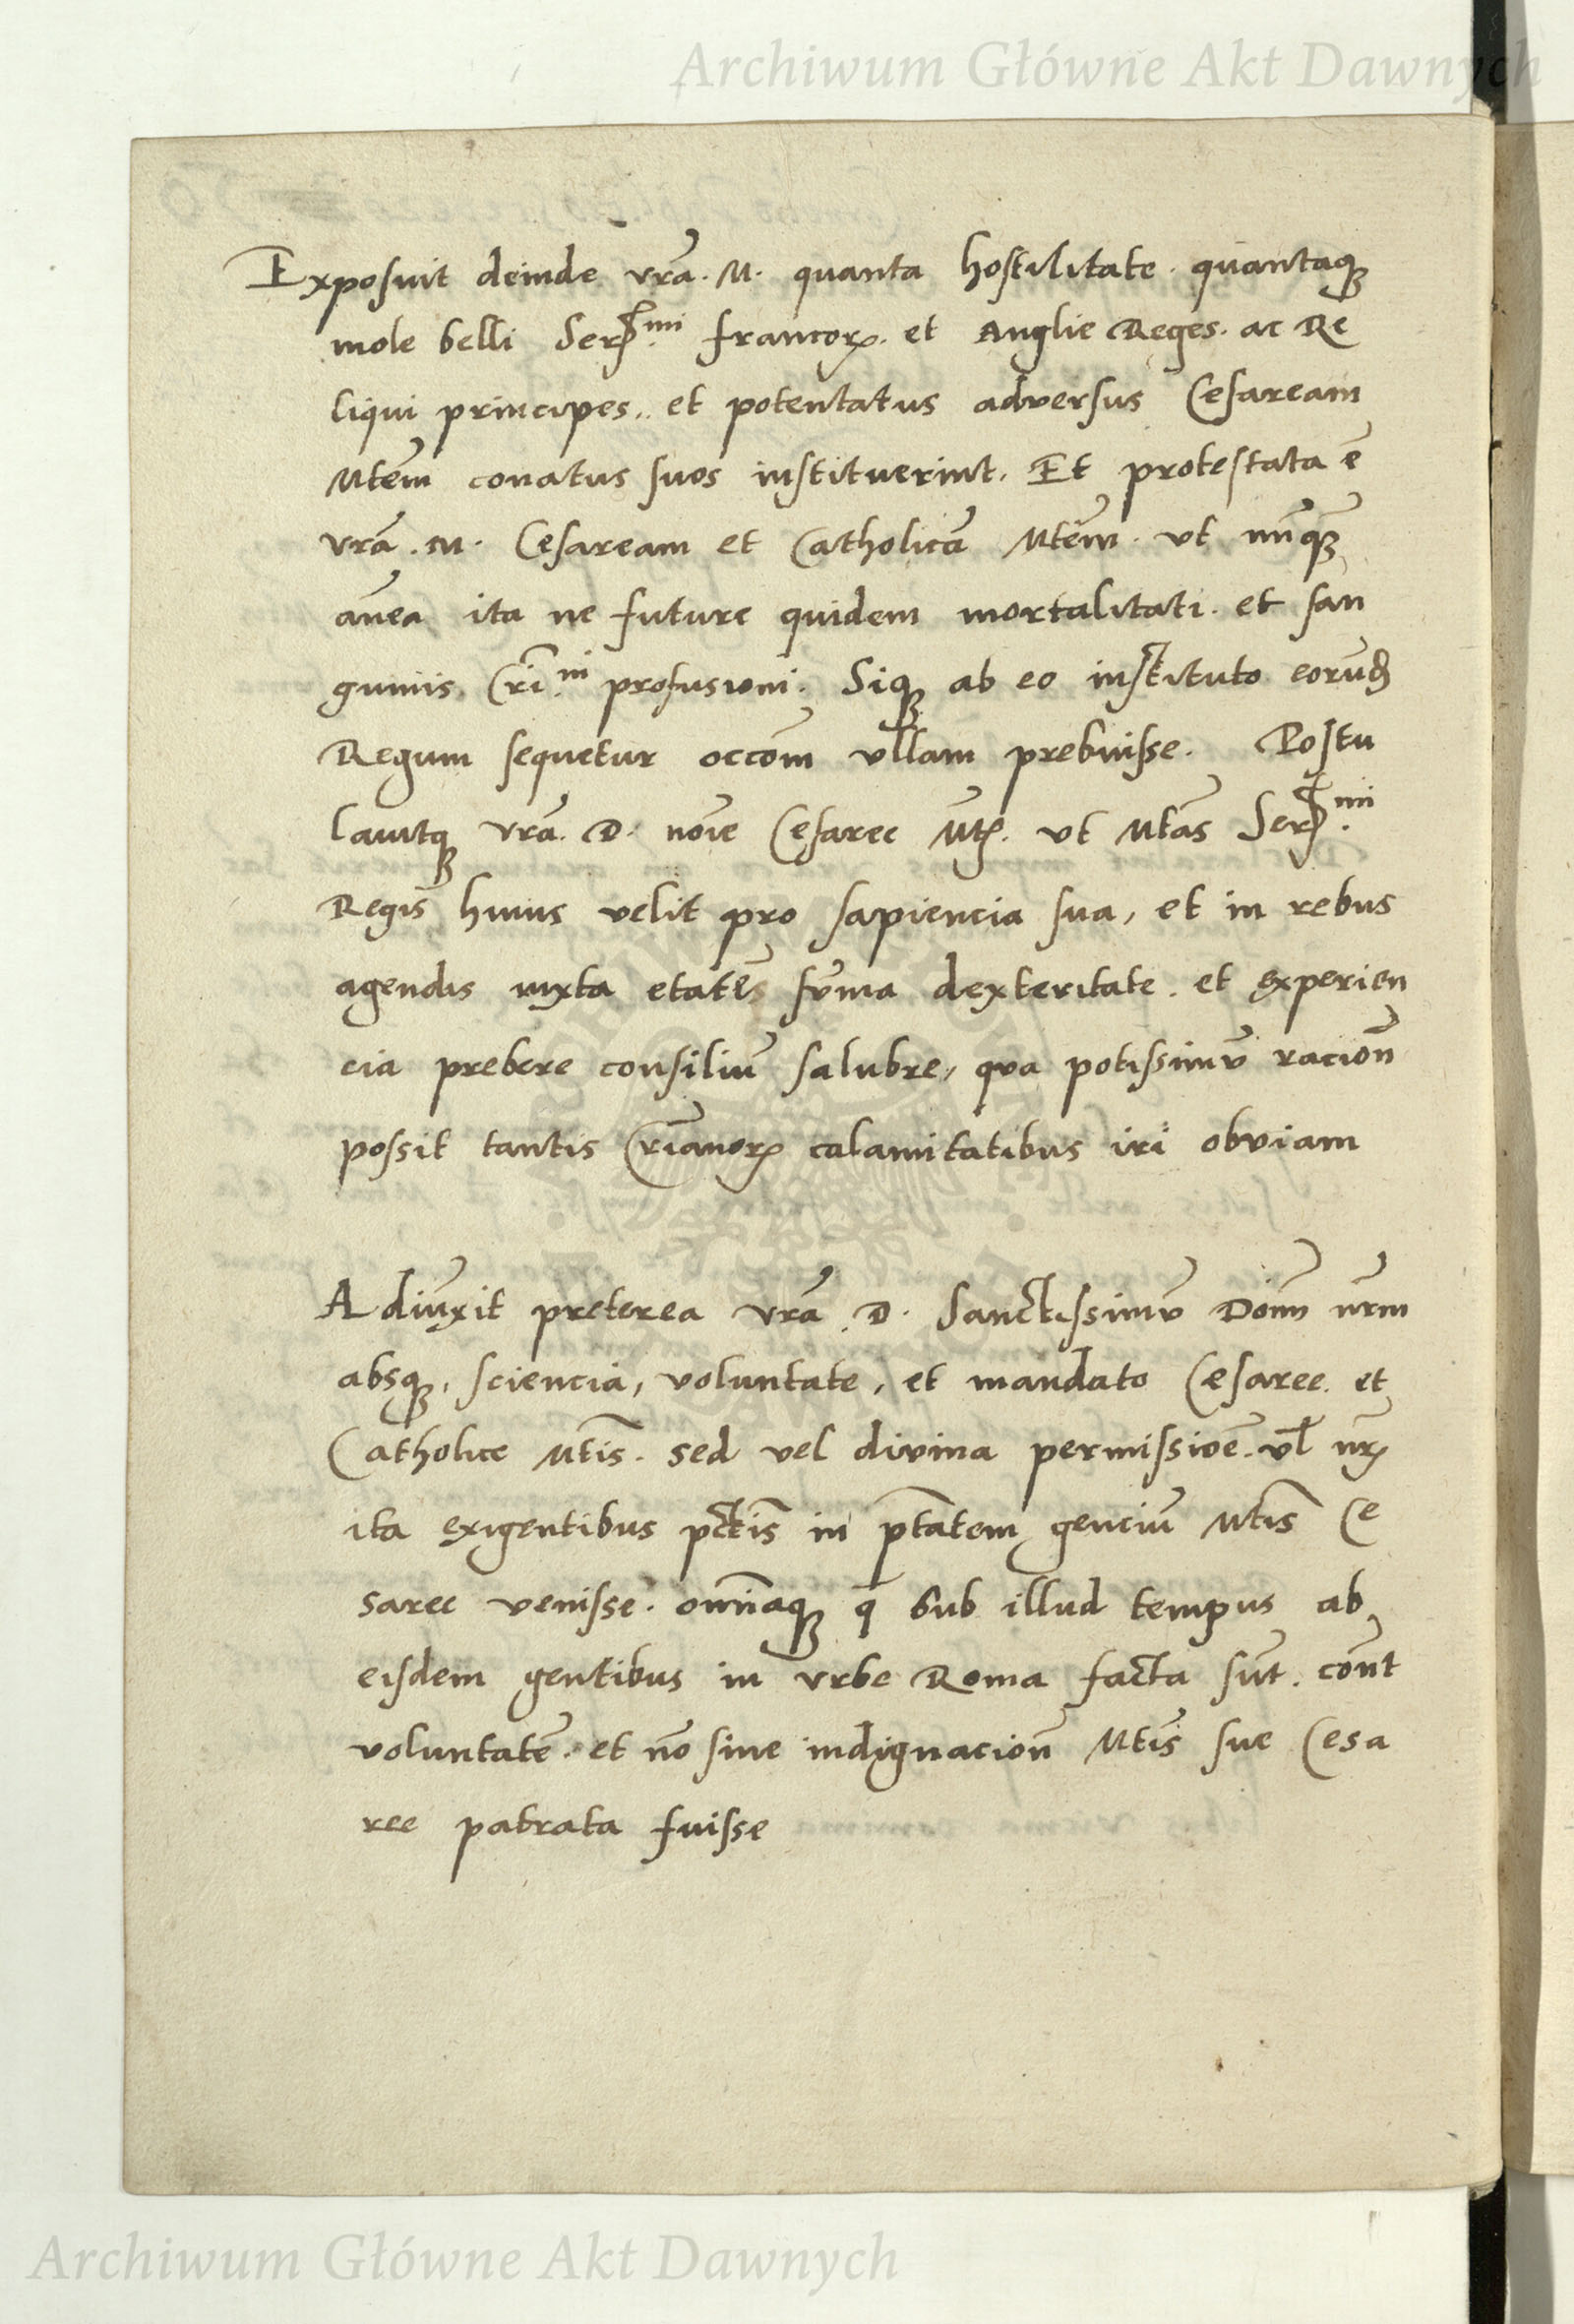 Archiwum Główne Akt Dawnych
Exposuit deinde vrā. M. quanta hostilitate. quantaqꝫ
mole belli Serᵐⁱ francoꝝ. et Anglie Reges. ac Re
liqui principes.. et potentatus adversus Cesaream
Mtēm conatus suos instituerint. Et protestata ē
vrā. M. Cesaream et Catholicā Mtēm. vt nūqꝫ
anēa ita ne future quidem mortalitati. et san
guinis Cri̅ⁿⁱ profusioni. Siqꝫ ab eo instituto eorūd
Regum sequetur occōm vllam prebuisse. Postu
lavitqꝫ vrā. D. noīe Cesaree Mt̄ꝭ. vt Mtās Serᵐⁱ
Regis̄ huius velit pro sapiencia sua, et in rebus
agendis iuxta etatēs sūma dexteritate. et experien
cia prebere consiliū salubre, qua potissimū racion̄
possit tantis Cri̅anoꝝ calamitatibus iri obviam
Adiūxit preterea vrā. D. Sanctissimū Dom̄ nr̄m
absqꝫ, sciencia, voluntate, et mandato Cæsaree. et
Catholice Mtīs. sed vel divina permissioē. vl̄ nr̄ꝭ
ita exigentibus pctīs in ptātem genciū Mtīs Ce
saree venisse. omīaqꝫ q̄ sub illud tempus ab
eisdem gentibus in vrbe Roma facta sūt. cōnt
voluntatē. et nō sine indignacion̄ Mtīs sue Cesa
ree patrata fuisse
Archiwum Główne Akt Dawnych